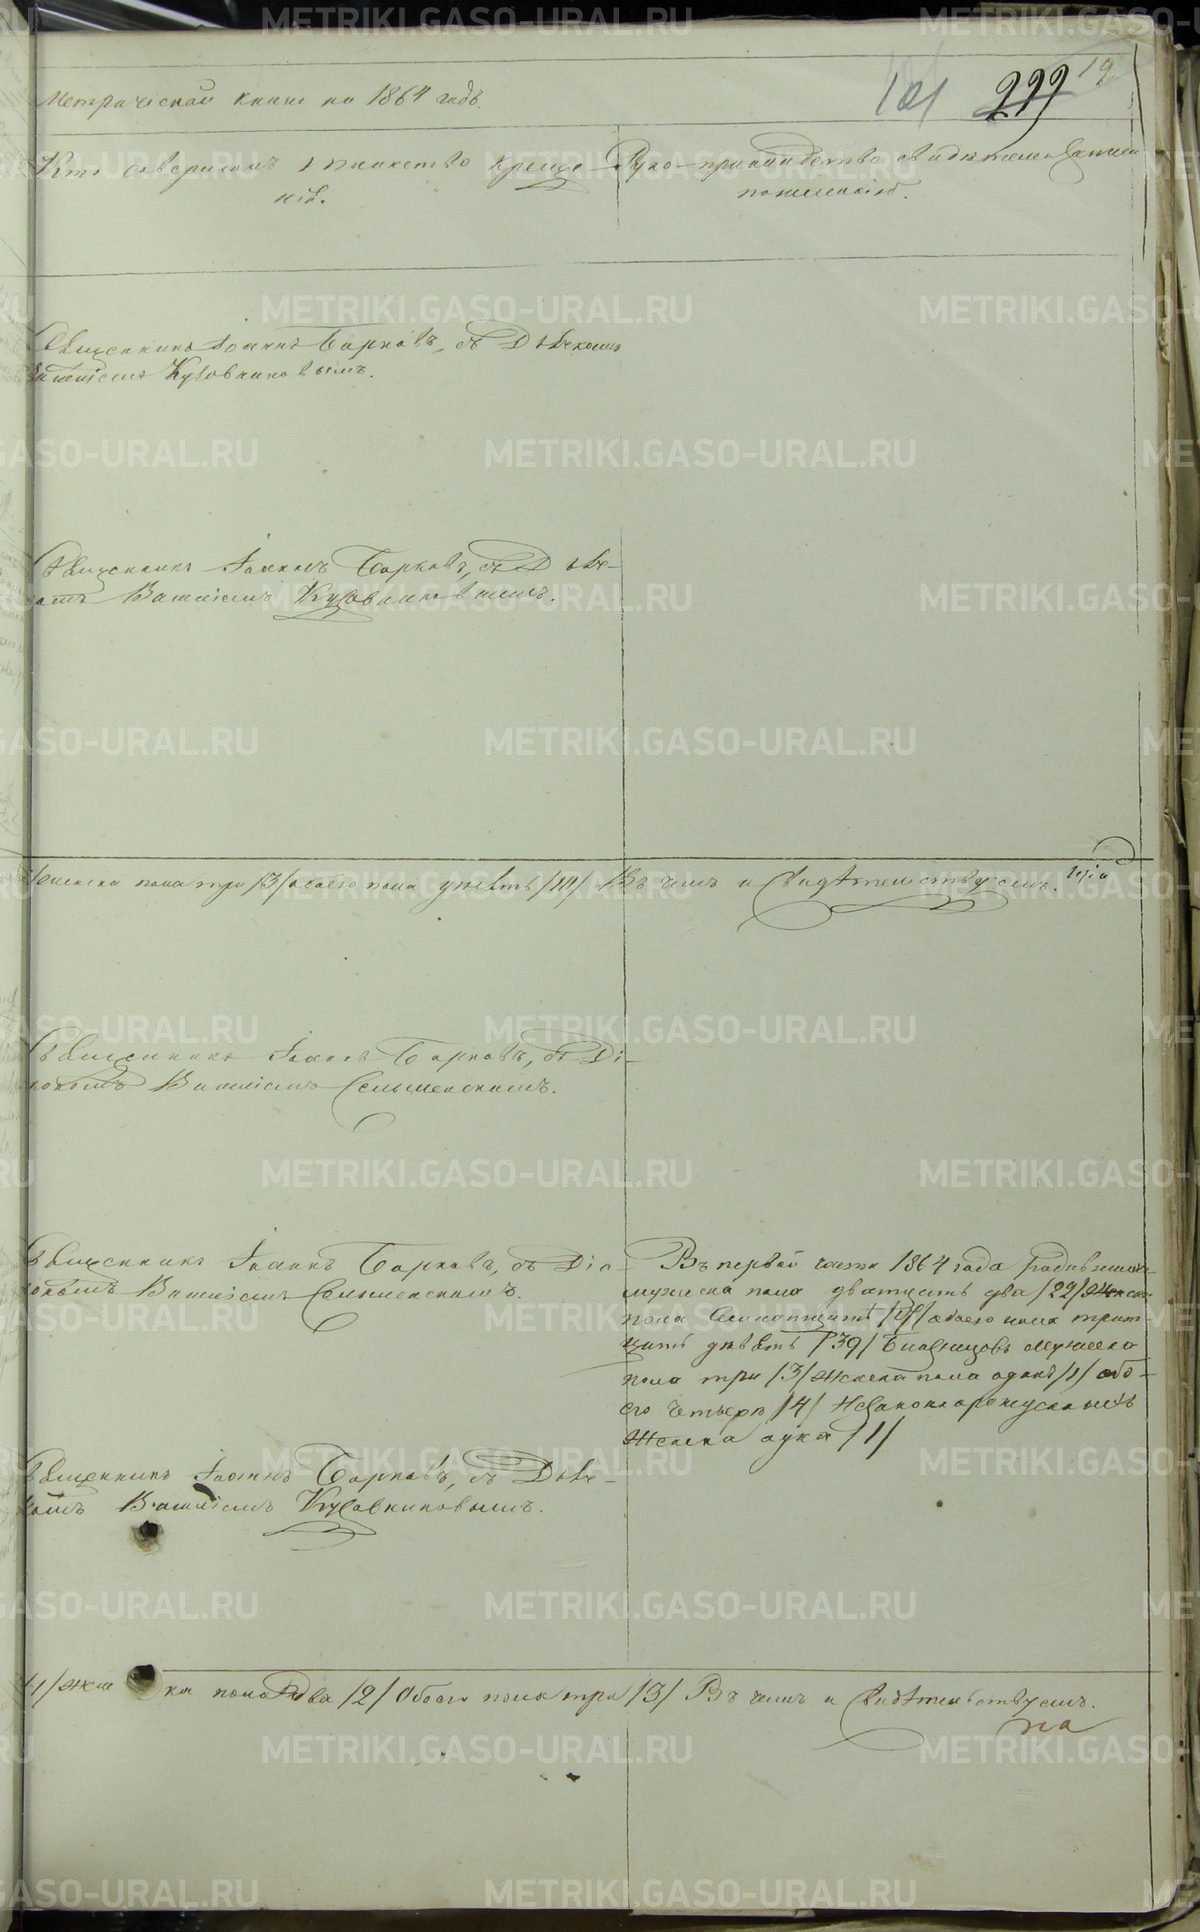 Метрической книги на 1864 годъ.
101 299 19
Кто совершалъ таинство креще-
нія.
Руко-прикладство свидѣтелей записи
по желанію.
Священникъ Іоаннъ Барковъ, съ Дьячкомъ
Василіемъ Кузовниковымъ.
Священникъ Іоаннъ Барковъ, съ Дьяч-
Василіемъ Кузовниковымъ.
женска пола три /3/ обоего пола Въ чемъ и свидѣтельствуемъ.
Священникъ Іоаннъ Барковъ, съ Ді-
кономъ Василіемъ
Священникъ Іоаннъ Барковъ, съ Діа
кономъ Василіемъ
Въ первой части 1864 года Родившихся
мужеска пола дватцать два /22/ Женска
пола семнатцать /17/ обоего пола трит-
цать девѣть /39/ Близнецовъ мужеска
пола три /3/ Женска пола одинъ /1/ обо-
его четыре /4/ Незаконнорожденныхъ
Женска одна /1/
Священникъ Іоаннъ Барковъ, съ Дьяч-
комъ Василіемъ Кузовниковымъ.
/1/ Женска пола два /2/ Обоего пола три /3/ Въ чемъ и свидѣтельствуемъ.